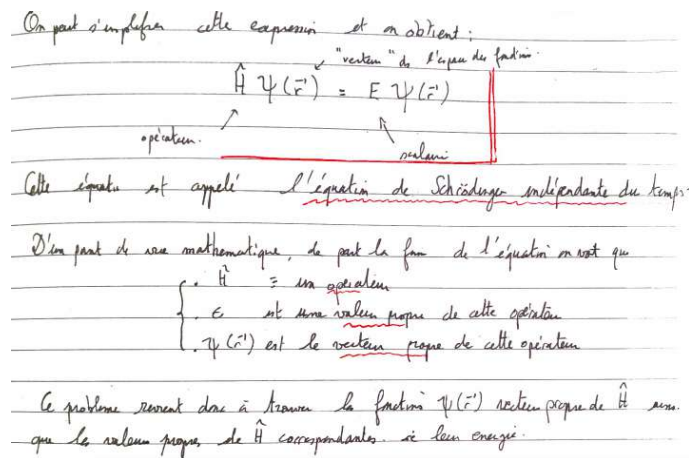 On peut simplifier cette expression et on obtient :
"vecteur" de l'espace des fonctions.
Ĥ ψ(r⃗) = E ψ(r⃗)
opérateur.
scalaire
Cette équation est appelé l'équation de Schrödinger indépendante du temps.
D'un point de vue mathématique, de part la forme de l'équation on voit que
. Ĥ ≡ un opérateur
. E est une valeur propre de cette opérateur
. ψ(r⃗) est le vecteur propre de cette opérateur
Ce problème revient donc à trouver la fonction ψ(r⃗) vecteur propre de Ĥ ainsi
que les valeurs propres de Ĥ correspondantes. ie leur energie.